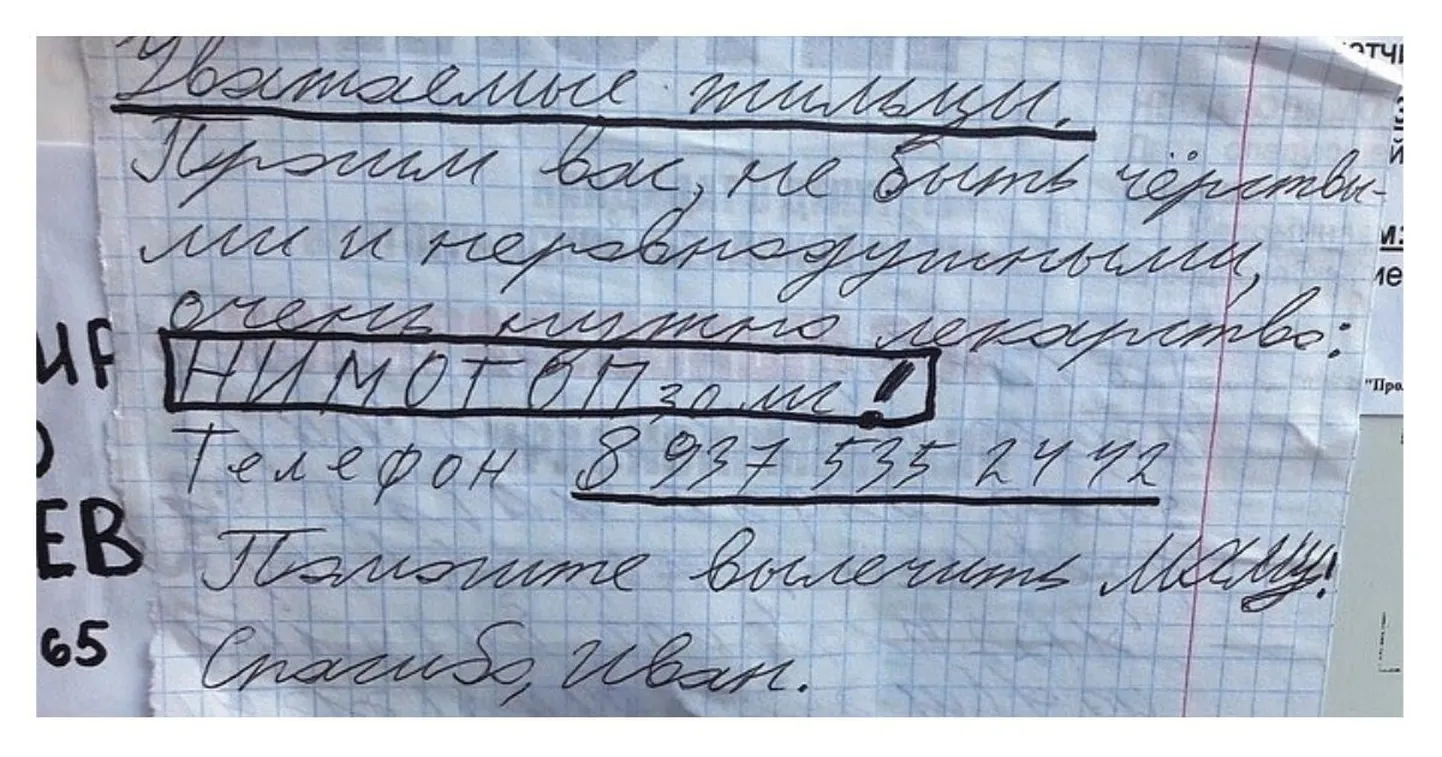 Уважаемые жильцы.
Просим вас, не быть чёрствы-
ми и неравнодушными,
очень нужно лекарство:
НИМОТОП 30 мг!
Телефон 8 937 535 24 42
Поможите вылечить маму!
Спасибо, Иван.
ЕВ
65
"Про